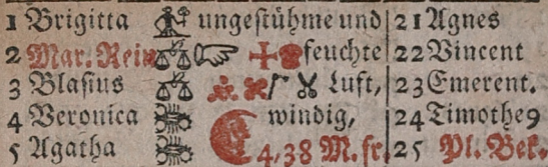 1 Brigitta ungeſtühme und 21 Agnes
2 Mar. Rein feuchte 22 Vincent
3 Blaſius Luft, 23 Emerent.
4 Veronica windig, 24 Timotheꝰ
5 Agatha 4,38 M. fr. 25 Pl. Bek.